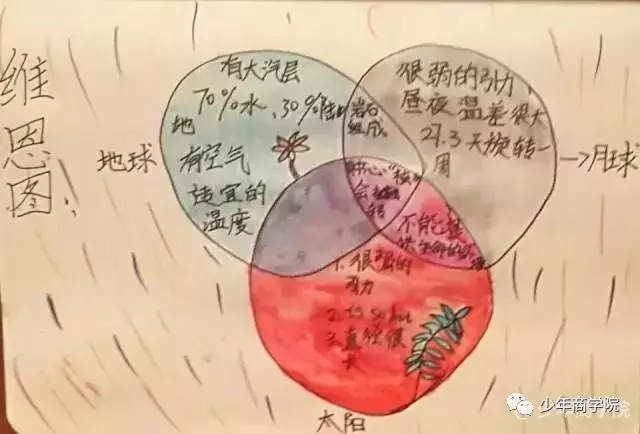 维恩图:
地球
有大汽层
70%水、30%陆
地
有空气
适宜的
温度
岩石
组成。
很弱的引力
昼夜温差很大
27.3天旋转一
周
→月球
会
转
不能
1.很强的
引力
2.so hot
3.直径很
大
太阳
少年商学院